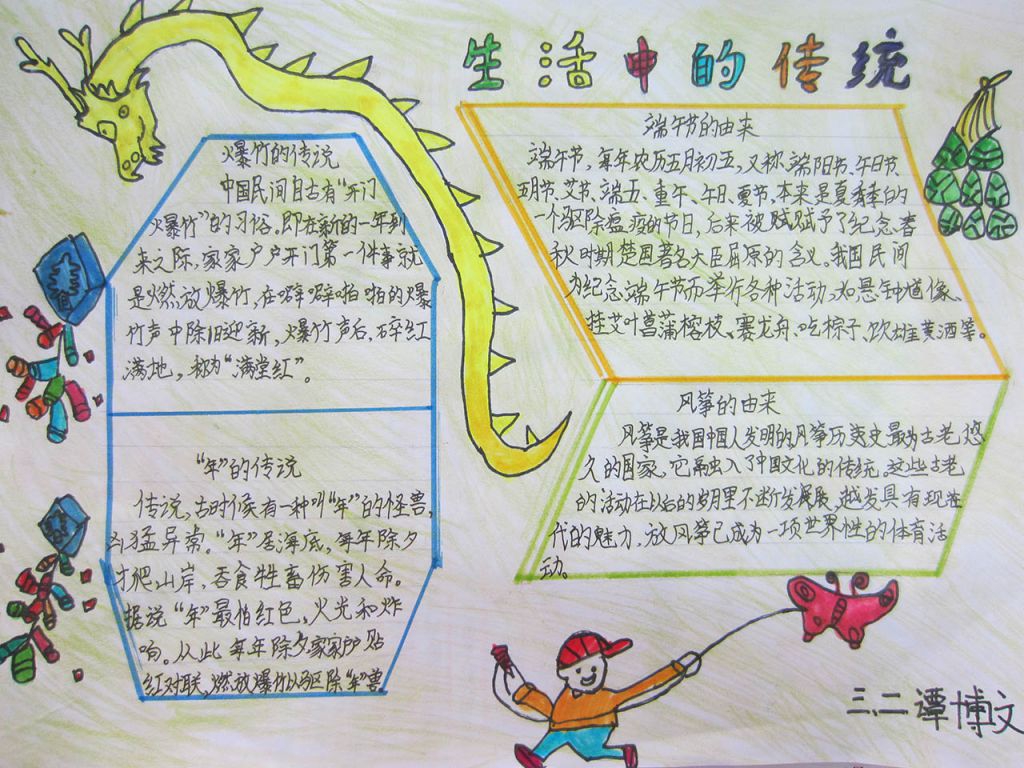 生活中的传统
爆竹的传说
中国民间自古有“开门
爆竹”的习俗。即在新的一年到
来之际,家家户户开门第一件事就
是燃放爆竹,在噼噼啪啪的爆
竹声中除旧迎新,爆竹声后,碎红
满地,称为“满堂红”。
“年”的传说
传说,古时候有一种叫“年”的怪兽,
凶猛异常。“年”居海底,每年除夕
才爬山岸,吞食牲畜伤害人命。
据说“年”最怕红色,火光和炸
响。从此每年除夕家家户贴
红对联,燃放爆竹以驱除“年”兽
端午节的由来
端午节,每年农历五月初五,又称端阳节、午日节、
五月节、艾节、端五、重午、午日、夏节,本来是夏季的
一个驱除瘟疫的节日,后来被赋予了纪念春
秋时期楚国著名大臣屈原的含义。我国民间
为纪念端午节而举行各种活动,如悬钟馗像、
挂艾叶菖蒲榕枝、赛龙舟、吃粽子、饮雄黄酒等。
风筝的由来
风筝是我国中国人发明的风筝历史最为古老,悠
久的国家。它融入了中国文化的传统。这些古老
的活动在以后的岁月里不断发展,越发具有现在
代的魅力,放风筝已成为一项世界性的体育活
动。
三、二谭博文